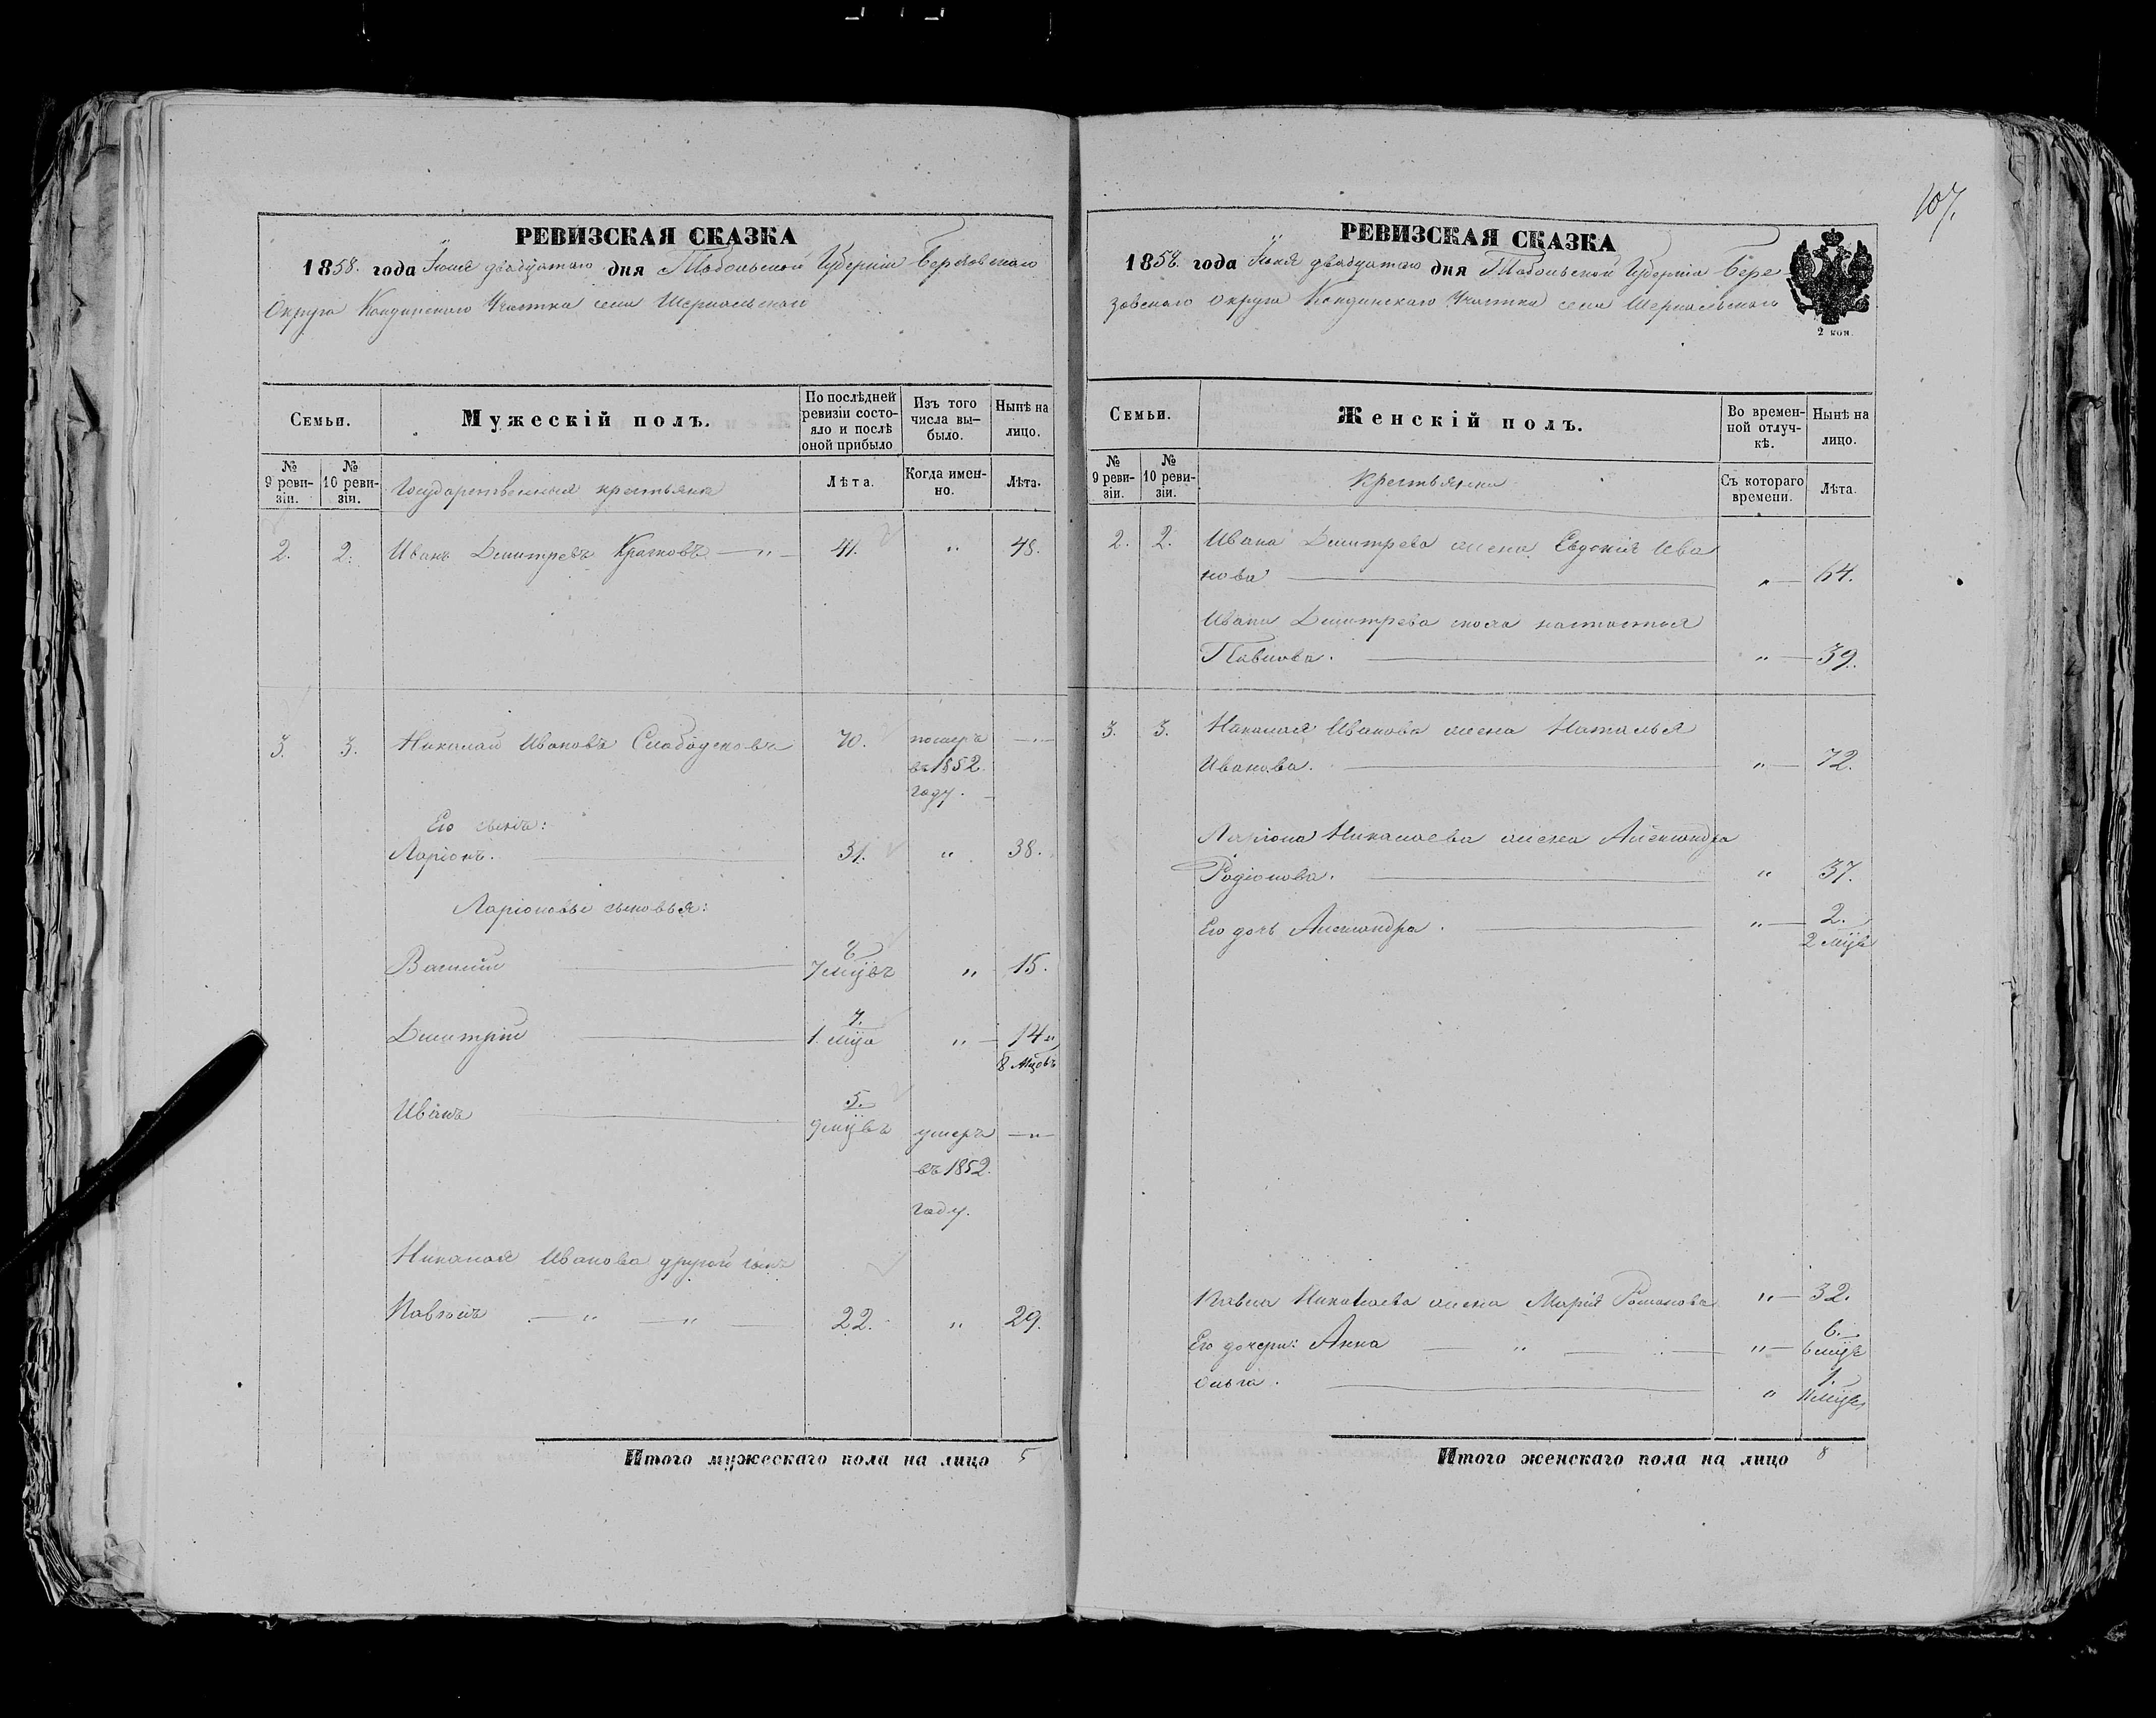 107.
РЕВИЗСКАЯ СКАЗКА
1858. года Іюня двадцатаго дня Тобольской Губерніи Березовскаго
Округа Кондинскаго Участка села Шеркальскаго
Семьи.
Мужескій полъ.
По послѣдней ревизіи состояло и послѣ оной прибыло
Изъ того числа вы-было.
Нынѣ на лицо.
№ 9 реви-зіи.
№ 10 реви-зіи.
Государственныя крестьяна
Лѣта.
Когда имен-но.
Лѣта.
2. 2. Иванъ Дмитревъ —„— 41. „ 48.
3. 3. Николай Ивановъ Слободсковъ 70. померъ —„—
въ 1852.
году.
Его сынъ:
Ларіонъ. 31. „ 38.
Ларіоновы сыновья:
8
Василій 7 мцовъ „ 15.
7.
Дмитрій 1. мца „ 14 „
8 мцовъ
5.
Иванъ 9 мцвъ умеръ —„—
въ 1852.
году.
Николая Иванова другой сынъ
Павелъ — „ — „ — 22. „ 29.
Итого мужескаго пола на лицо 5
РЕВИЗСКАЯ СКАЗКА
1858. года Іюня двадцатаго дня Тобольской Губерніи Бере
зовскаго Округа Кондинскаго Участка села Шеркальскаго
2 коп.
Семьи.
Женскій полъ.
Во времен-ной отлуч-кѣ.
Нынѣ на лицо.
№ 9 реви-зіи.
№ 10 реви-зіи.
Крестьянки
Съ котораго времени.
Лѣта.
2. 2. Ивана Дмитрева жена Евдокія Ива
нова „ 64.
Ивана Дмитрева настасья
Павлова. „ 39.
3. 3. Николая Иванова жена Наталья
Иванова. „ 72.
Ларіона Николаева жена Александра
Родіонова. „ 37.
Его дочь Александра. „ 2.
2 мца
Павла Николаева жена Марія Романова „ 32.
6.
Его дочери: Анна — „ — „ 6 мцъ
1.
Ольга. „ 11 мцвъ
Итого женскаго пола на лицо 8